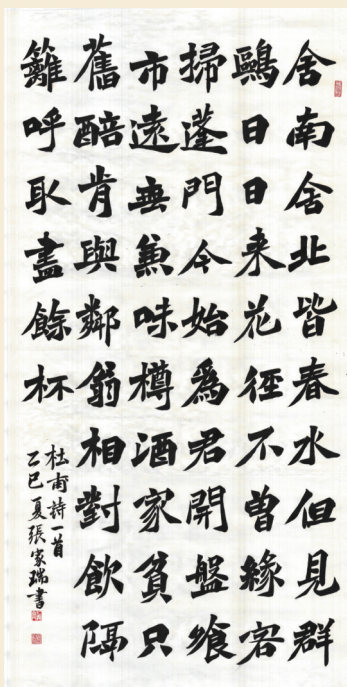 舍南舍北皆春水但見群
鷗日日来花徑不曾緣客
掃蓬門今始爲君開盤飧
市遠無兼味樽酒家貧只
舊醅肯與鄰翁相對飲隔
籬呼取盡餘杯
杜甫詩一首
乙巳夏張家瑞書